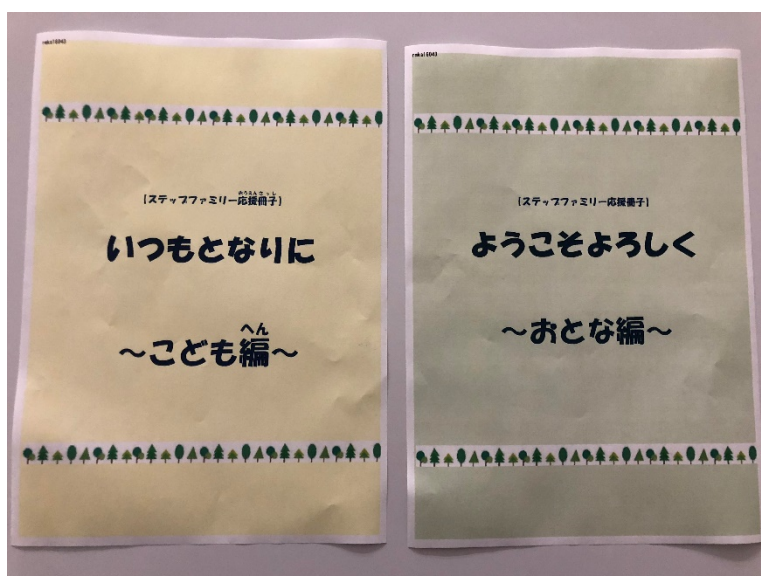 【ステップファミリー応援冊子】
おうえんさっし
いつもとなりに
～こども編～
へん
【ステップファミリー応援冊子】
ようこそよろしく
～おとな編～